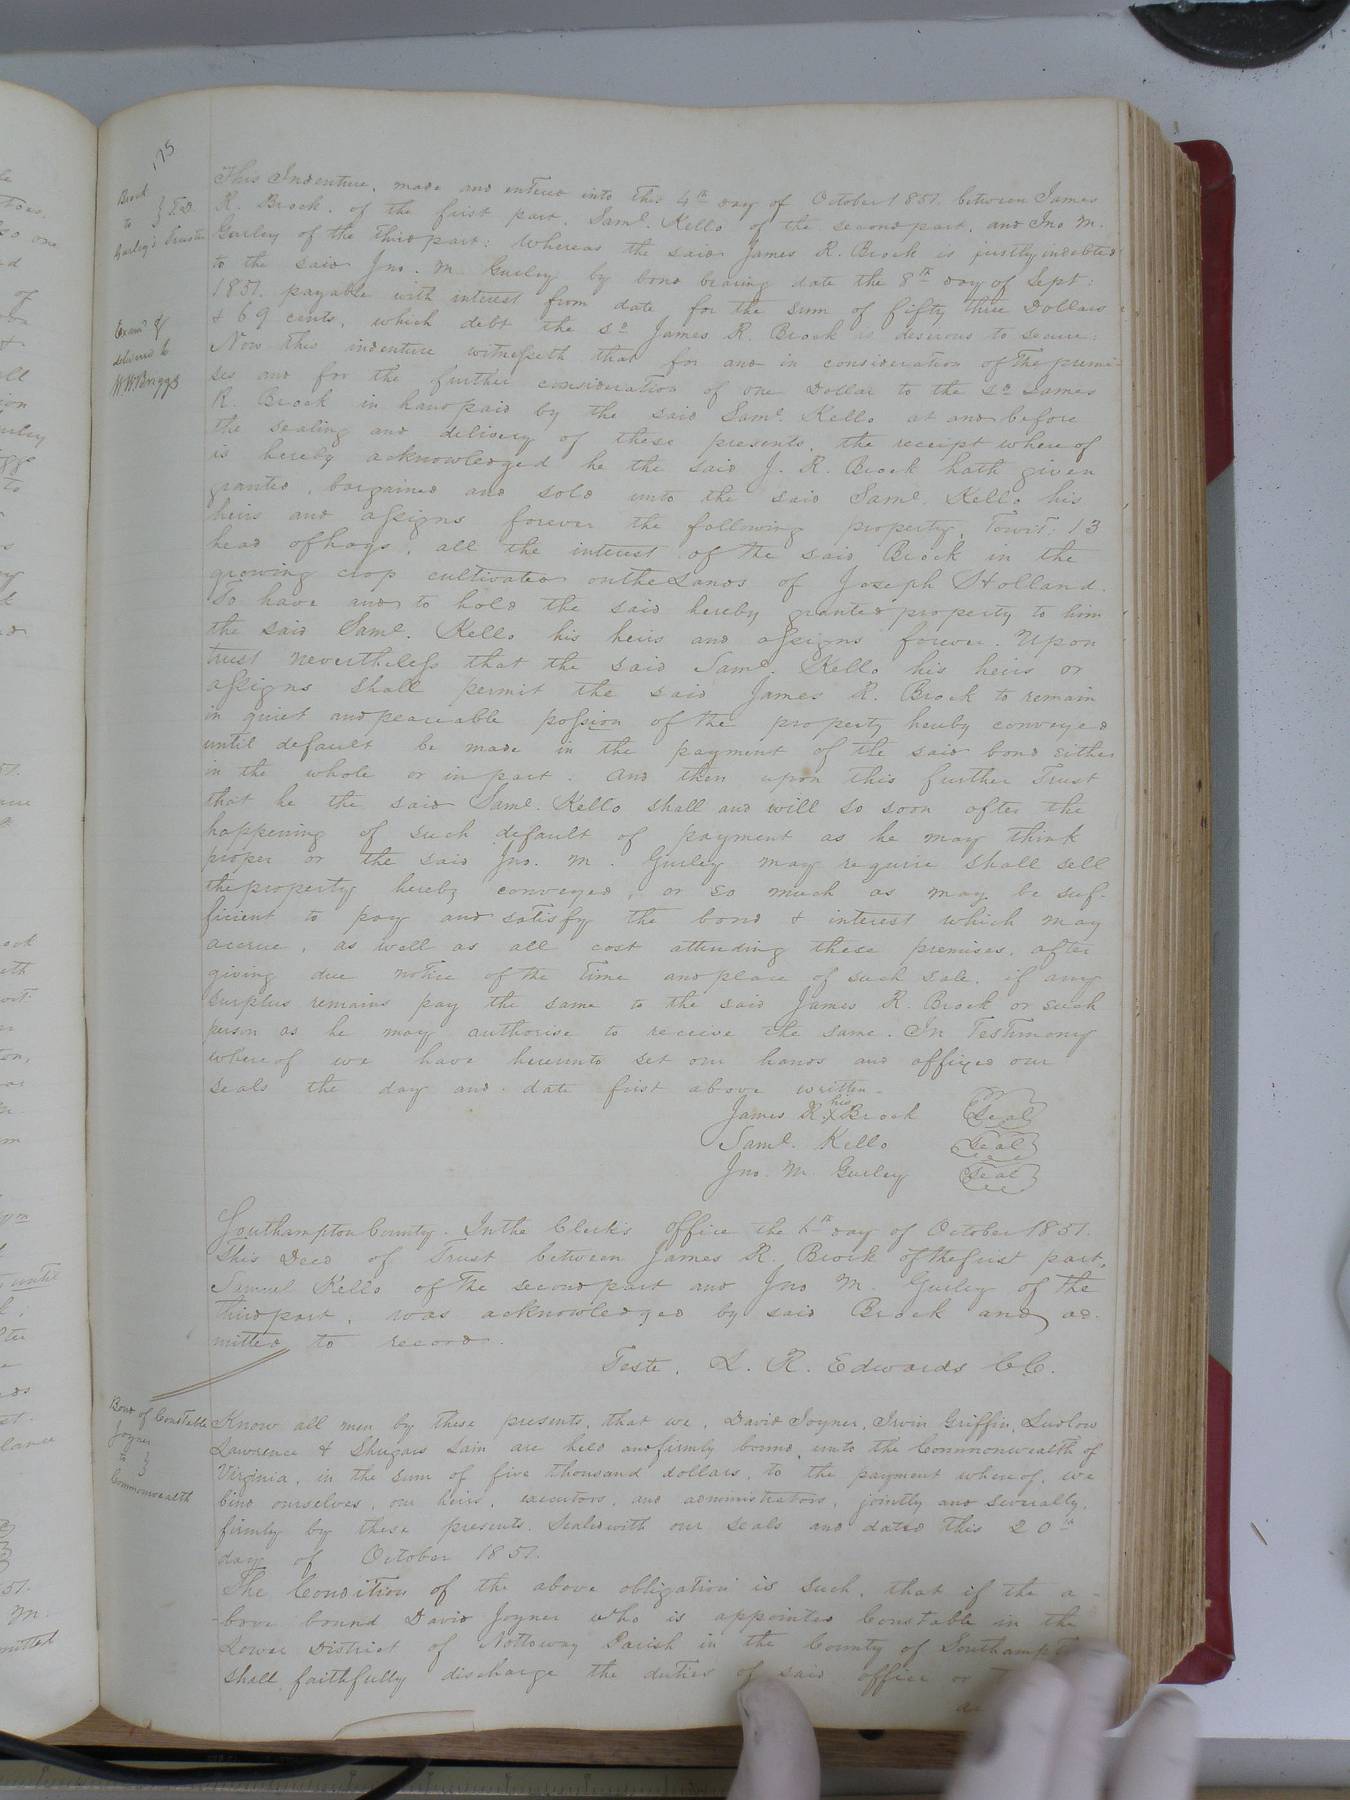 175
Brock
to } T.D.
Gurley's Trustee
Exam.d &
delivered to
W. W. Briggs
This Indenture, made and entered into this 4th day of October 1851. between James
R. Brock, of the first part, Saml. Kello of the second part, and Jno M.
Gurley of the third part: Whereas the said James R. Brock is justly indebted
to the said Jno. M. Gurley by bond bearing date the 8th day of Sept:
1851. payable with interest from date for the sum of fifty three Dollars
& 69 cents, which debt the sd James R. Brock is desirous to secure:
Now this indenture witnesseth that for and in consideration of the premi-
ses and for the further consideration of one Dollar to the sd James
R. Brock in hand paid by the said Saml. Kello at and before
the sealing and delivery of these presents, the receipt where of
is hereby acknowledged he the said J. R. Brock hath given
granted, bargained and sold unto the said Saml. Kello his
heirs and assigns forever the following property, Towit: 13
head of hogs, all the interest of the said Brock in the
growing crop cultivated on the Lands of Joseph S Holland.
To have and to hold the said hereby granted property to him
the said Saml. Kello his heirs and assigns forever. Upon
trust nevertheless that the said Saml. Kello his heirs or
assigns shall permit the said James R. Brock to remain
in quiet and peaceable possion of the property hereby conveyed
until default be made in the payment of the said bond either
in the whole or in part. And then upon this further Trust
that he the said Saml. Kello shall and will so soon after the
happening of such default of payment as he may think
proper or the said Jno. M. Gurley may require shall sell
the property hereby conveyed, or so much as may be suf-
ficient to pay and satisfy the bond & interest which may
accrue, as well as all cost attending these premises, after
giving due notice of the time and place of such sale, if any
surplus remains pay the same to the said James R. Brock or such
person as he may authorise to receive the same. In Testimony
where of we have hereunto set our hands and affixed our
seals the day and date first above written
James R. his X Brock Seal
Saml. Kello Seal
Jno. M Gurley Seal
Southampton County. In the Clerk's office the day of October 1851.
This Deed of Trust between James R. Brock of the first part,
Samuel Kello of the second part and Jno M. Gurley of the
third part, was acknowledged by said Brock and ad-
mitted to record.
Teste, L. R. Edwards C.C.
Bond of Constable
Joyner
to }
Commonwealth
Know all men by these presents, that we, David Joyner, Irvin Griffin, Ludlow
Lawrence & Shugars Lain are held and firmly bound unto the Commonwealth of
Virginia, in the sum of five thousand dollars, to the payment whereof, we
bind ourselves, our heirs, executors, and administrators, jointly and severally,
firmly by these presents. Sealed with our seals and dated this 20th
day of October 1851.
The Condition of the above obligation is such, that if the a-
bove bound David Joyner who is appointed Constable in the
Lower District of Nottoway Parish in the County of Southampton
shall faithfully discharge the duties of said office or